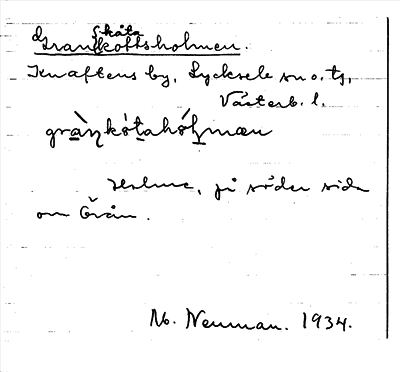 Grankottsholmen.
skåta
Knaftens by, Lycksele sn o. tg,
Västerb. l.
grànkó̀tahóɭmæn
Holme, på söder sida
om Örån.
Nb. Neuman. 1934.